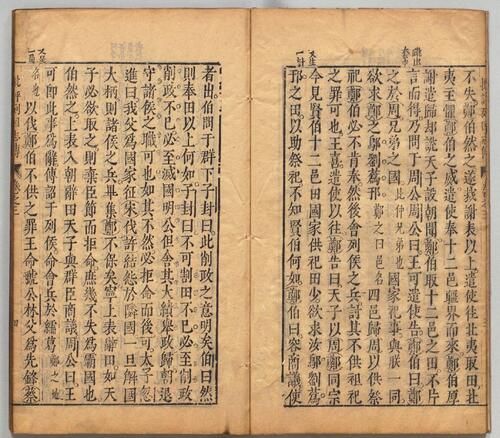 不失鄭伯然之遂裁謝表以上遣使往北夷取田北
夷王懼鄭伯之威遣使奉十二邑疆界而來鄭伯厚
謝遣歸却說天子設朝聞鄭伯取十二邑之田不片
言而得乃問于周公周公曰王可遣使告鄭伯曰鄭
之於周兄弟之國兄弟也國家祀事與朕一同
欲求鄭之鄔劉蒍邘鄭之曰邑名四邑歸周以供祭
祀鄭伯必不肯奉然後會列侯之兵討其不供祖祀
之罪可也王喜遣使以往鄭伯告曰天子以周鄭同宗
又生一計
今見賢伯十二邑田國家供祀田少欲求汝鄔劉蒍
邘之田以助祭祀賢伯何如鄭伯曰容商議使
者出伯問于群下子封曰此削政之意明矣伯曰然
則奉田以上何如子封曰不可割田不已必至削政
削政不已必至滅國明公但命其大績舉政歸朝退
守諸侯之職可也如其不然必拒命而後可太子忽
進曰我父為國家征宋伐許結怨於隣國一旦解國
大柄則諸侯之兵畢集鄭不保矣寧上表辭田如天
子必欲取之則棄臣節而拒命庶幾不失為霸國也
伯然之上表入朝辭田天子與群臣商議周公曰王
可即此事為讎傳詔于列侯命會兵於繻葛鄭之地
名也以伐鄭伯不供之罪王命虢公林父為先鋒蔡